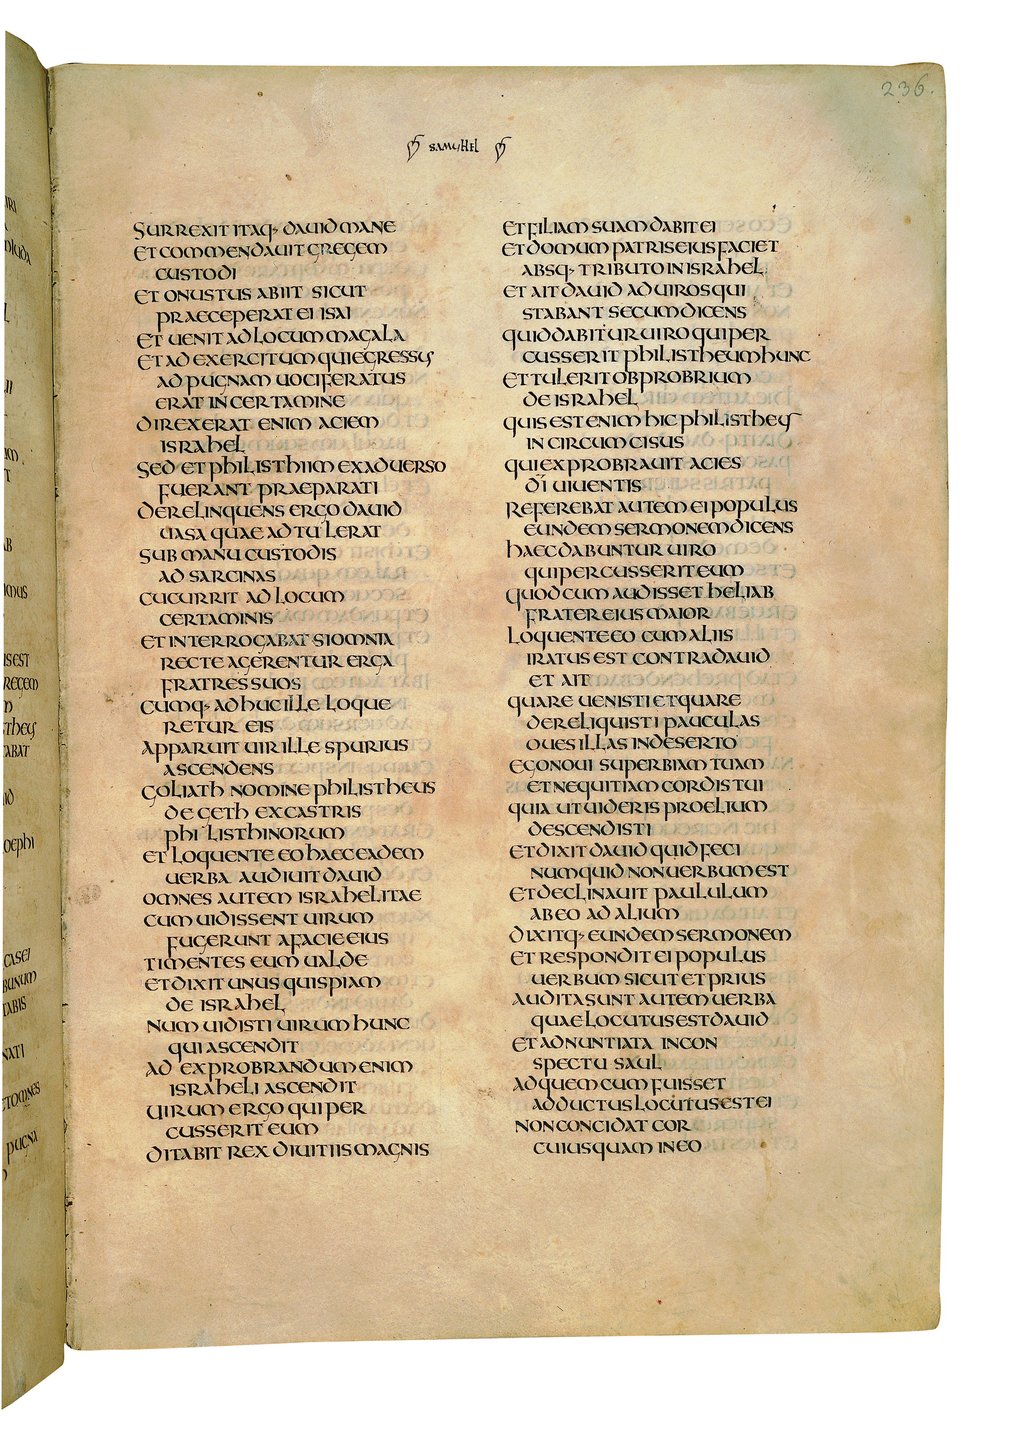 236.
SAMUHEL
SURREXIT ITAQ· DAUID MANE
ET COMMENDAUIT GREGEM
CUSTODI
ET ONUSTUS ABIIT SICUT
PRAECEPERAT EI ISAI
ET UENIT AD LOCUM MAGALA
ET AD EXERCITUM QUI EGRESSUS
AD PUGNAM UOCIFERATUS
ERAT IN CERTAMINE
DIREXERAT ENIM ACIEM
ISRAHEL
SED ET PHILISTHIIM EX ADUERSO
FUERANT PRAEPARATI
DERELINQUENS ERGO DAUID
UASA QUAE ADTULERAT
SUB MANU CUSTODIS
AD SARCINAS
CUCURRIT AD LOCUM
CERTAMINIS
ET INTERROGABAT SI OMNIA
RECTE AGERENTUR ERGA
FRATRES SUOS
CUMQ· ADHUC ILLE LOQUE
RETUR EIS
APPARUIT UIR ILLE SPURIUS
ASCENDENS
GOLIATH NOMINE PHILISTHEUS
DE GETH EX CASTRIS
PHILISTHINORUM
ET LOQUENTE EO HAEC EADEM
UERBA AUDIUIT DAUID
OMNES AUTEM ISRAHELITAE
CUM UIDISSENT UIRUM
FUGERUNT A FACIE EIUS
TIMENTES EUM UALDE
ET DIXIT UNUS QUISPIAM
DE ISRAHEL
NUM UIDISTI UIRUM HUNC
QUI ASCENDIT
AD EXPROBRANDUM ENIM
ISRAHELI ASCENDIT
UIRUM ERGO QUI PER
CUSSERIT EUM
DITABIT REX DIUITIIS MAGNIS
ET FILIAM SUAM DABIT EI
ET DOMUM PATRIS EIUS FACIET
ABSQ· TRIBUTO IN ISRAHEL
ET AIT DAUID AD UIROS QUI
STABANT SECUM DICENS
QUID DABITUR UIRO QUI PER
CUSSERIT PHILISTHEUM HUNC
ET TULERIT OBPROBRIUM
DE ISRAHEL
QUIS EST ENIM HIC PHILISTHEUS
INCIRCUMCISUS
QUI EXPROBRAUIT ACIES
DI UIUENTIS
REFEREBAT AUTEM EI POPULUS
EUNDEM SERMONEM DICENS
HAEC DABUNTUR UIRO
QUI PERCUSSERIT EUM
QUOD CUM AUDISSET HELIAB
FRATER EIUS MAIOR
LOQUENTE EO CUM ALIIS
IRATUS EST CONTRA DAUID
ET AIT
QUARE UENISTI ET QUARE
DERELIQUISTI PAUCULAS
OUES ILLAS IN DESERTO
EGO NOUI SUPERBIAM TUAM
ET NEQUITIAM CORDIS TUI
QUIA UT UIDERIS PROELIUM
DESCENDISTI
ET DIXIT DAUID QUID FECI
NUMQUID NON UERBUM EST
ET DECLINAUIT PAULULUM
AB EO AD ALIUM
DIXITQ· EUNDEM SERMONEM
ET RESPONDIT EI POPULUS
UERBUM SICUT ET PRIUS
AUDITA SUNT AUTEM UERBA
QUAE LOCUTUS EST DAUID
ET ADNUNTIATA IN CON
SPECTU SAUL
AD QUEM CUM FUISSET
ADDUCTUS LOCUTUS EST EI
NON CONCIDAT COR
CUIUSQUAM IN EO